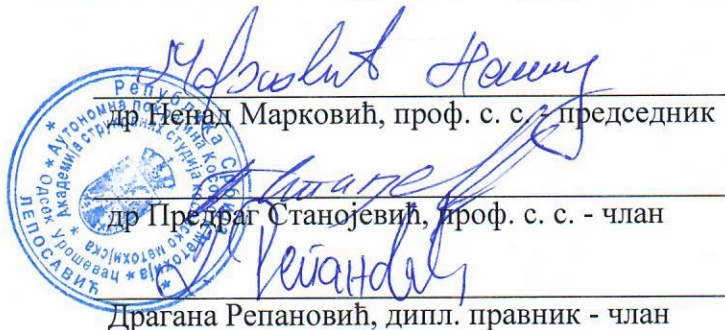 др Ненад Марковић, проф. с. с. - председник
др Предраг Станојевић, проф. с. с. - члан
Драгана Репановић, дипл. правник - члан
Република Србија
Аутономна покрајина Косово и Метохија
Академија струковних студија косовско метохијска
Одсек Урошевац
ЛЕПОСАВИЋ